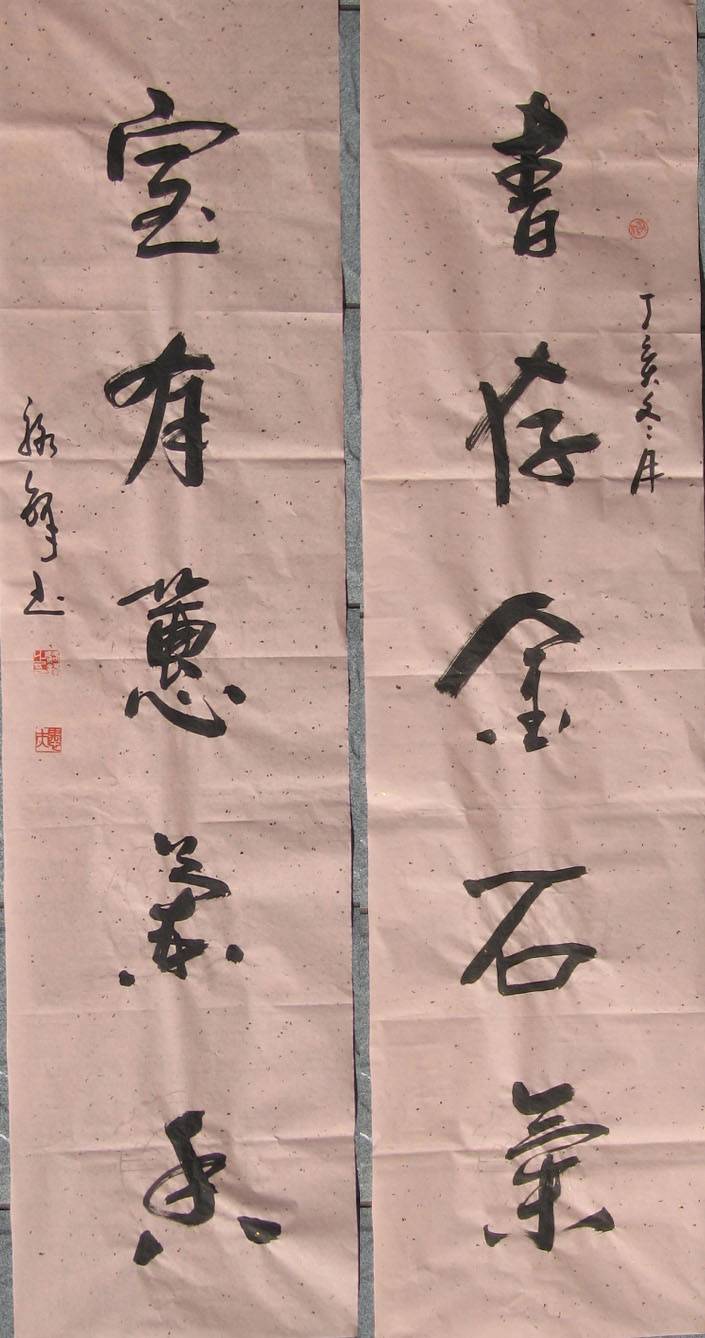 書存金石氣
丁亥冬月
室有蕙蘭香